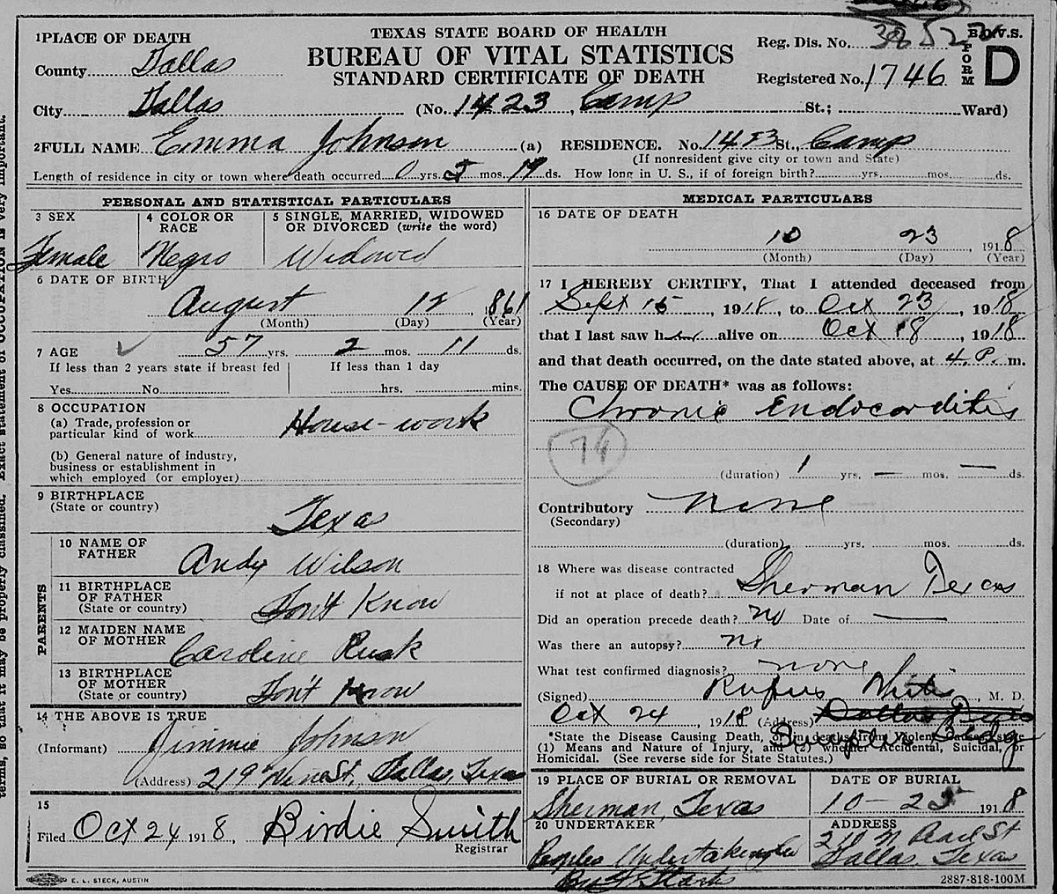 TEXAS STATE BOARD OF HEALTH
BUREAU OF VITAL STATISTICS
STANDARD CERTIFICATE OF DEATH
Reg. Dis. No.
B.O.V.S.
FORM D
Registered No. 1746
1 PLACE OF DEATH
County Dallas
City Dallas (No. 1423, Camp St.; Ward)
2 FULL NAME Emma Johnson (a) RESIDENCE. No. 1423 St., Camp
(If nonresident give city or town and State)
Length of residence in city or town where death occurred 0 yrs. 5 mos. 19 ds. How long in U. S., if of foreign birth? yrs. mos. ds.
PERSONAL AND STATISTICAL PARTICULARS
3 SEX
Female
4 COLOR OR RACE
Negro
5 SINGLE, MARRIED, WIDOWED
OR DIVORCED (write the word)
Widowed
6 DATE OF BIRTH
August 12, 1861
(Month) (Day) (Year)
7 AGE 57 yrs. 2 mos. 11 ds.
If less than 2 years state if breast fed If less than 1 day
Yes No hrs. mins.
8 OCCUPATION
(a) Trade, profession or
particular kind of work House-work
(b) General nature of industry,
business or establishment in
which employed (or employer)
9 BIRTHPLACE
(State or country) Texas
PARENTS
10 NAME OF
FATHER Andy Wilson
11 BIRTHPLACE
OF FATHER
(State or country) Don't Know
12 MAIDEN NAME
OF MOTHER Caroline Rusk
13 BIRTHPLACE
OF MOTHER
(State or country) Don't Know
14 THE ABOVE IS TRUE
(Informant) Jimmie Johnson
(Address) 219 St, Dallas, Texas
15
Filed Oct 24 1918, Birdie Smith
Registrar
MEDICAL PARTICULARS
16 DATE OF DEATH
10 23, 1918
(Month) (Day) (Year)
17 I HEREBY CERTIFY, That I attended deceased from
Sept 15, 1918, to Oct 23, 1918
that I last saw her alive on Oct 18, 1918
and that death occurred, on the date stated above, at 4. P. m.
The CAUSE OF DEATH* was as follows:
Chronic Endocarditis
74
(duration) 1 yrs. — mos. — ds.
Contributory None
(Secondary)
(duration) yrs. mos. ds.
18 Where was disease contracted
if not at place of death? Sherman Texas
Did an operation precede death? no Date of —
Was there an autopsy? no
What test confirmed diagnosis? none
(Signed) Rufus White, M. D.
Oct 24, 1918 (Address) Dallas Texas
Bldg
*State the Disease Causing Death, or in deaths from Violent Causes, state
(1) Means and Nature of Injury, and (2) whether Accidental, Suicidal, or
Homicidal. (See reverse side for State Statutes.)
19 PLACE OF BURIAL OR REMOVAL
Sherman, Texas
DATE OF BURIAL
10-25 1918
20 UNDERTAKER
Peoples Undertaking Co
ADDRESS
Dallas, Texas
E. L. STECK, AUSTIN
2887-818-100M
terms, so that it may be properly classified. Exact statement of OCCUPATION is very important.